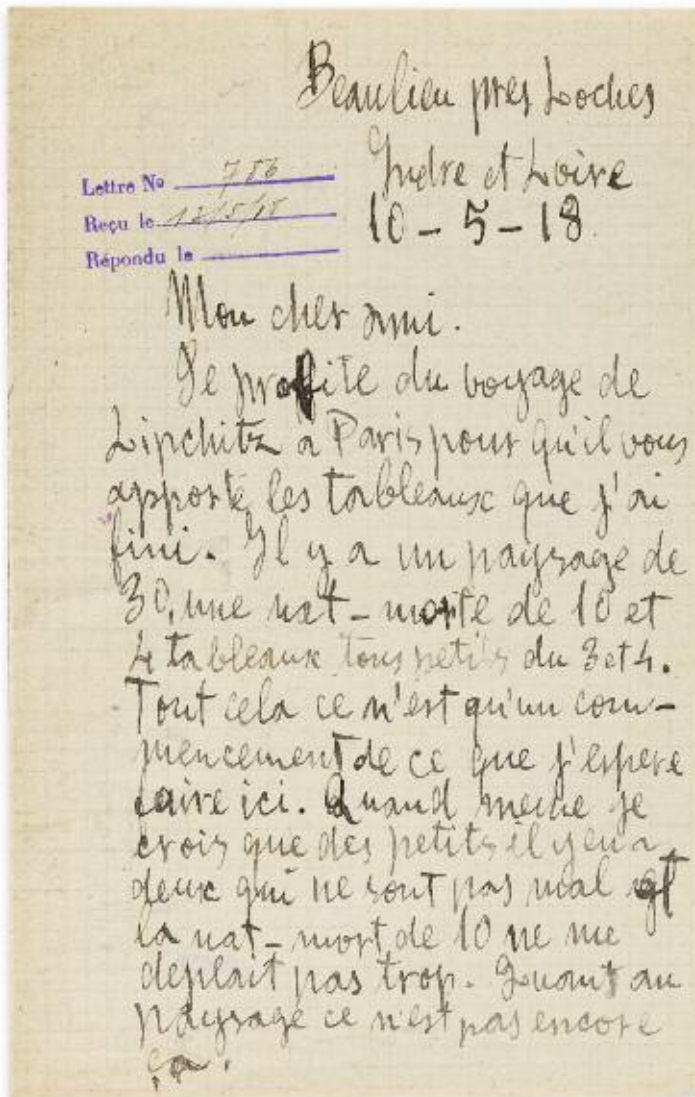 Beaulieu pres Loches
Indre et Loire
10 - 5 - 18
Lettre No 786
Reçu le 12/5/18
Répondu le
Mon cher ami.
Je profite du voyage de
Lipchitz a Paris pour qu'il vous
apporte les tableaux que j'ai
fini. Il y a un paysage de
30, une nat-morte de 10 et
4 tableaux tous petits du 3 et 4.
Tout cela ce n'est qu'un com-
mencement de ce que j'espere
faire ici. Quand meme je
crois que des petits il y en a
deux qui ne sont pas mal et
la nat-mort de 10 ne me
deplait pas trop. Quant au
paysage ce n'est pas encore
ça.